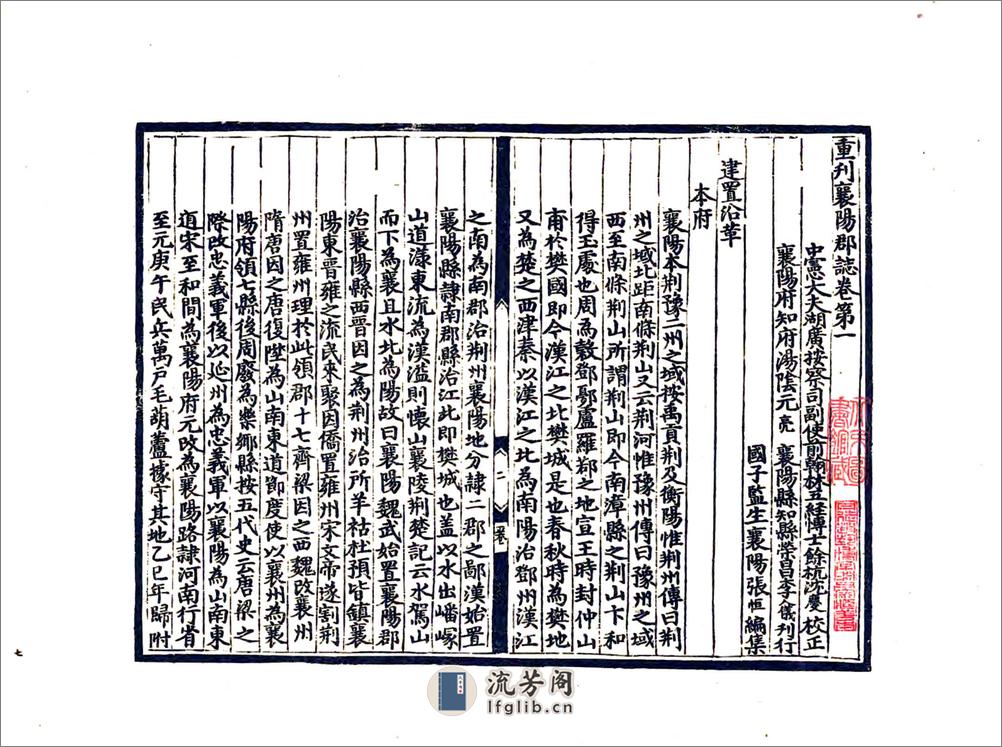 重刊襄陽郡誌卷第一
中憲大夫湖廣按察司副使前翰林五經博士餘杭沈慶校正
襄陽府知府湯陰元亮 襄陽縣知縣榮昌李儀刊行
國子監生襄陽張恒編集
建置沿革
本府
襄陽本荆豫二州之域按禹貢荆及衡陽惟荆州傳曰荆
州之域北距南條荆山又云荆河惟豫州傳曰豫州之域
西至南條荆山所謂荆山即今南漳縣之荆山卞和
得玉處也周為穀鄧鄾盧羅鄀之地宣王時封仲山
甫於樊國即今漢江之北樊城是也春秋時為樊地
又為楚之西津秦以漢江之北為南陽治鄧州漢江
二
卷一
之南為南郡治荆州襄陽地分隷二郡之鄙漢始置
襄陽縣隷南郡縣治江北即樊城也盖以水出嶓冡
山道漾東流為漢滥則懷山襄陵荆楚記云水駕山
而下為襄且水北為陽故曰襄陽魏武始置襄陽郡
治襄陽縣西晋因之為荆州治所羊祜杜預皆鎮襄
陽東晋雍之流民來聚因僑置雍州宋文帝遂割荆
州置雍州理於此領郡十七齊梁因之西魏改襄州
隋唐因之唐復陞為山南東道節度使以襄州為襄
陽府領七縣後周廢為樂鄉縣按五代史云唐梁之
際改忠義軍後以延州為忠義軍以襄陽為山南東
道宋至和間為襄陽府元改為襄陽路隷河南行省
至元庚午民兵萬戸毛葫蘆據守其地乙巳年歸附
七
流芳阁
lfglib.cn